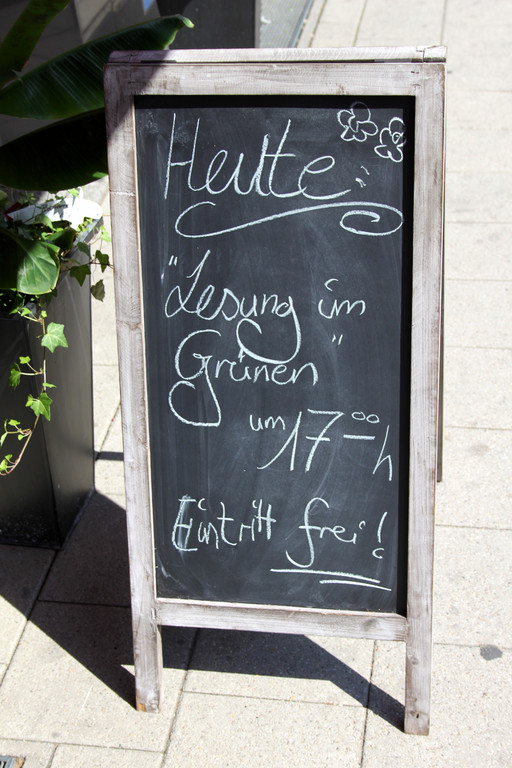 Heute:
"Lesung im
Grünen"
um 17⁰⁰ h
Eintritt frei!